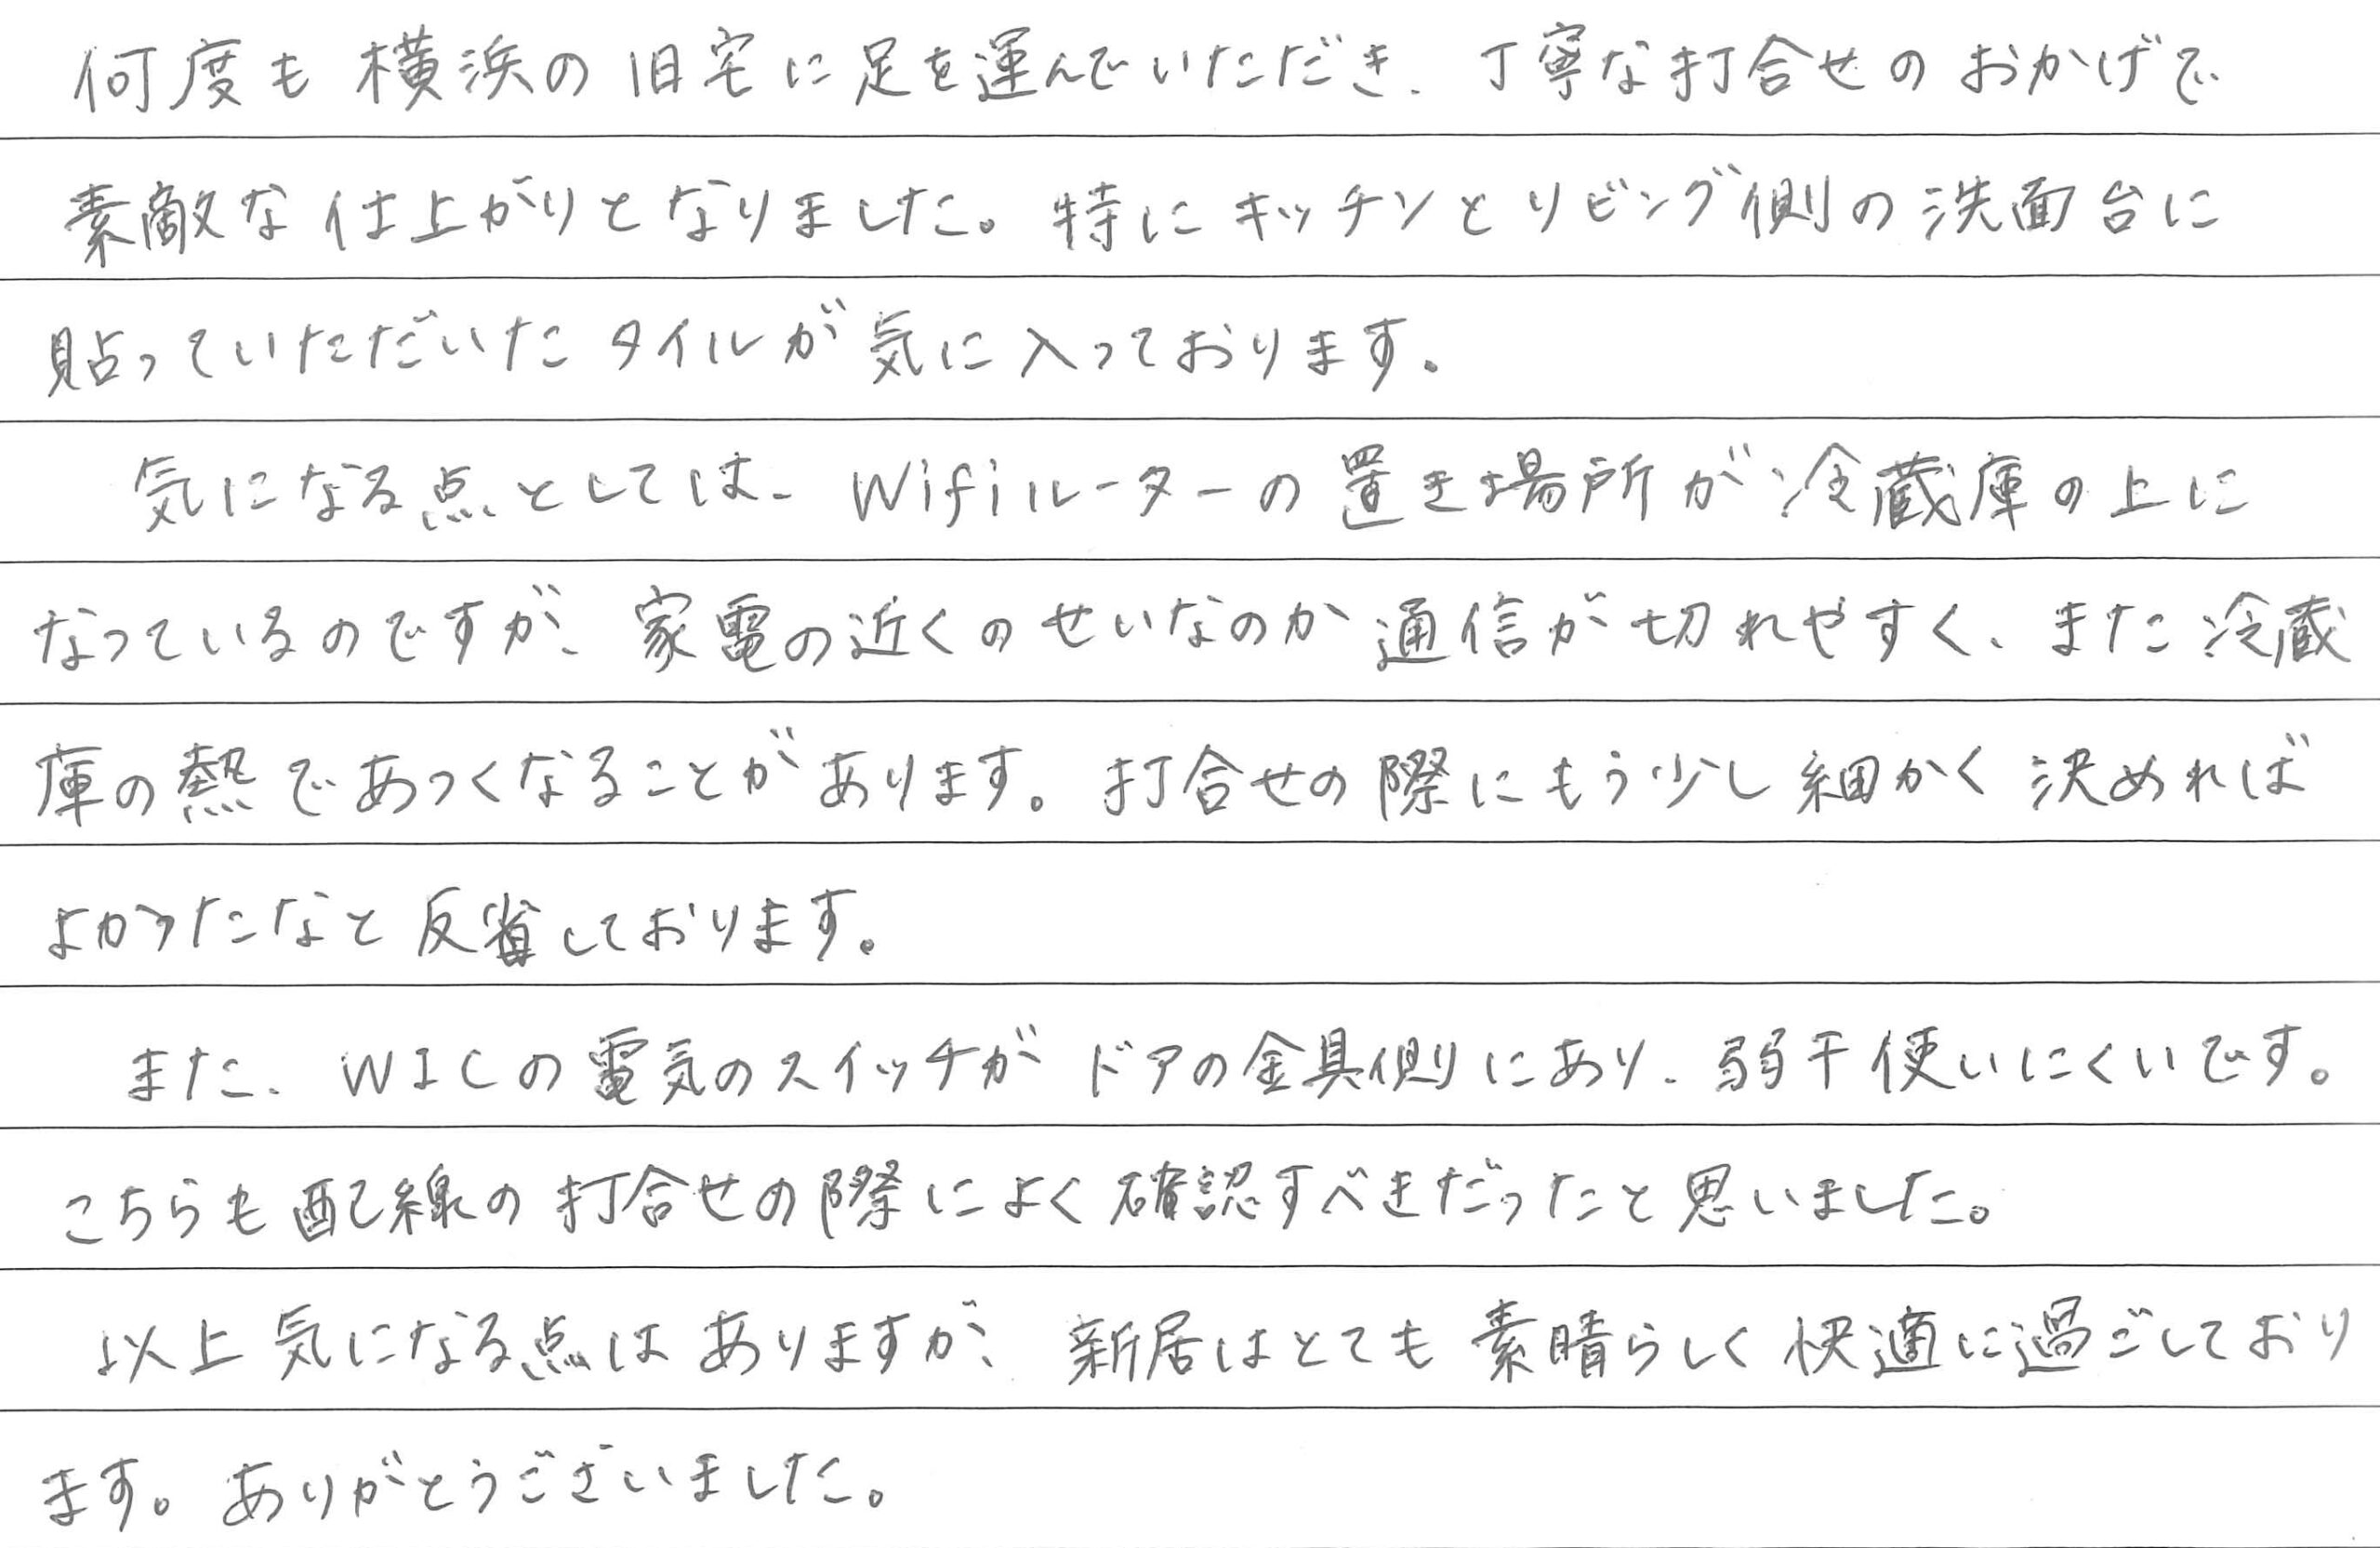 何度も横浜の旧宅に足を運んでいただき、丁寧な打合せのおかげで
素敵な仕上がりとなりました。特にキッチンとリビング側の洗面台に
貼っていただいたタイルが気に入っております。
気になる点としては、Wifiルーターの置き場所が冷蔵庫の上に
なっているのですが、家電の近くのせいなのか通信が切れやすく、また冷蔵
庫の熱であつくなることがあります。打合せの際にもう少し細かく決めれば
よかったなと反省しております。
また、WICの電気のスイッチがドアの金具側にあり、弱干使いにくいです。
こちらも配線の打合せの際によく確認すべきだったと思いました。
以上気になる点はありますが、新居はとても素晴らしく快適に過ごしており
ます。ありがとうございました。